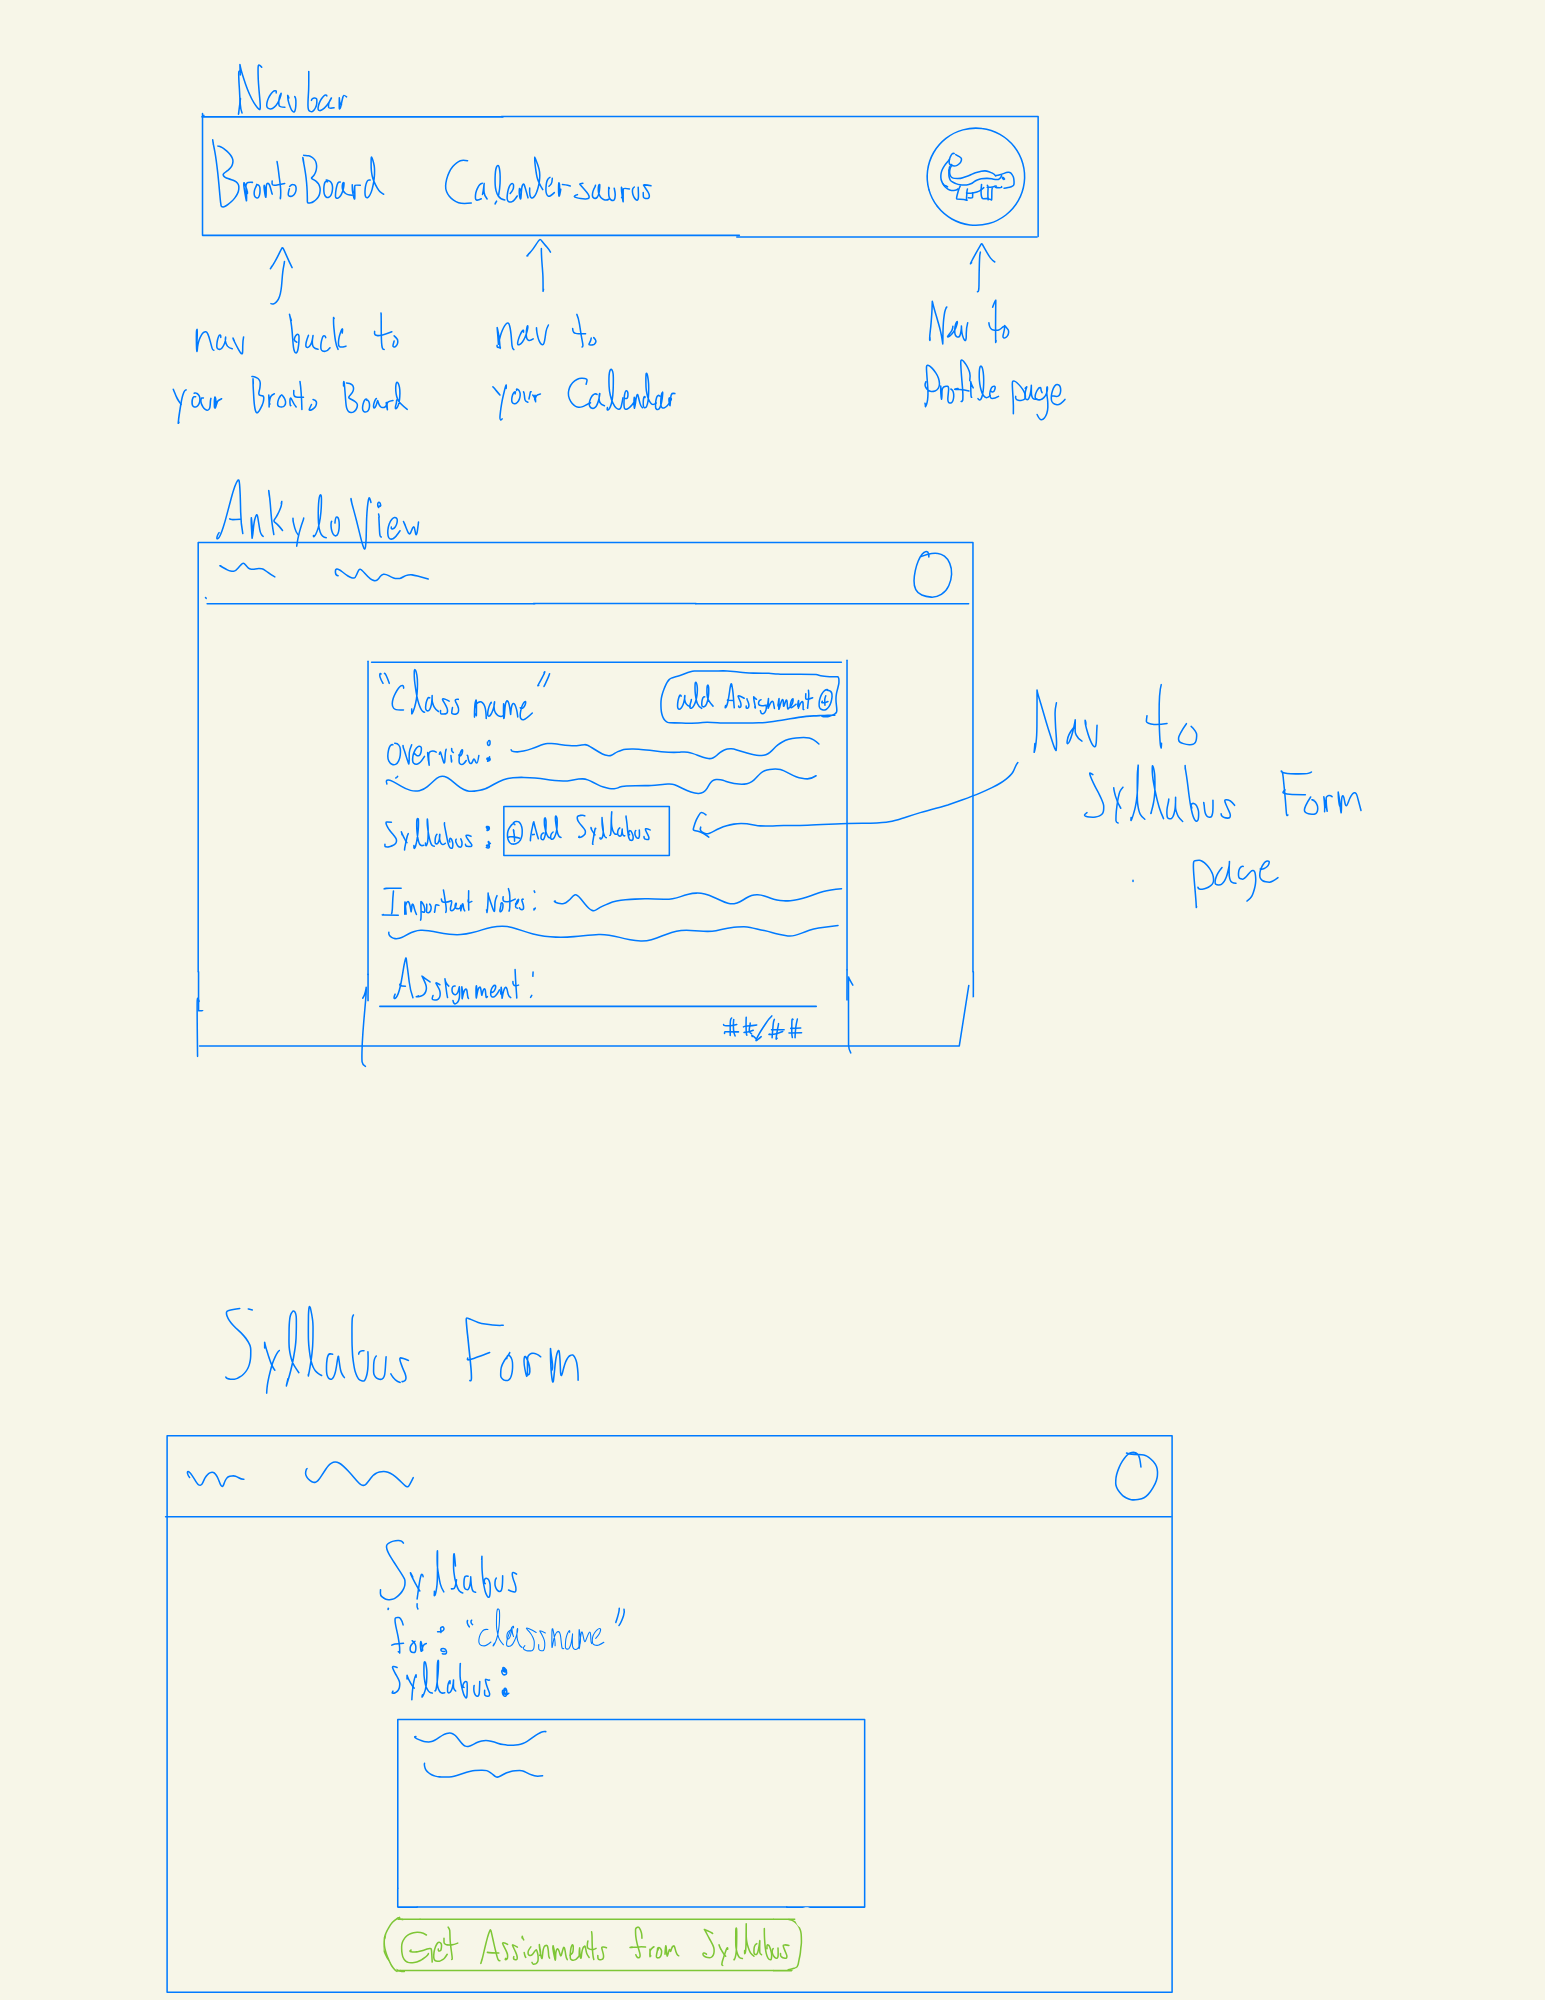 Navbar
BrontoBoard Calendersaurus
nav back to
your Bronto Board
nav to
your Calendar
Nav to
Profile page
AnkyloView
"Class name" add Assignment
Overview:
Syllabus: Add Syllabus
Important Notes:
Assignment:
##/##
Nav to
Syllabus Form
page
Syllabus Form
Syllabus
for: "classname"
Syllabus:
Get Assignments from Syllabus